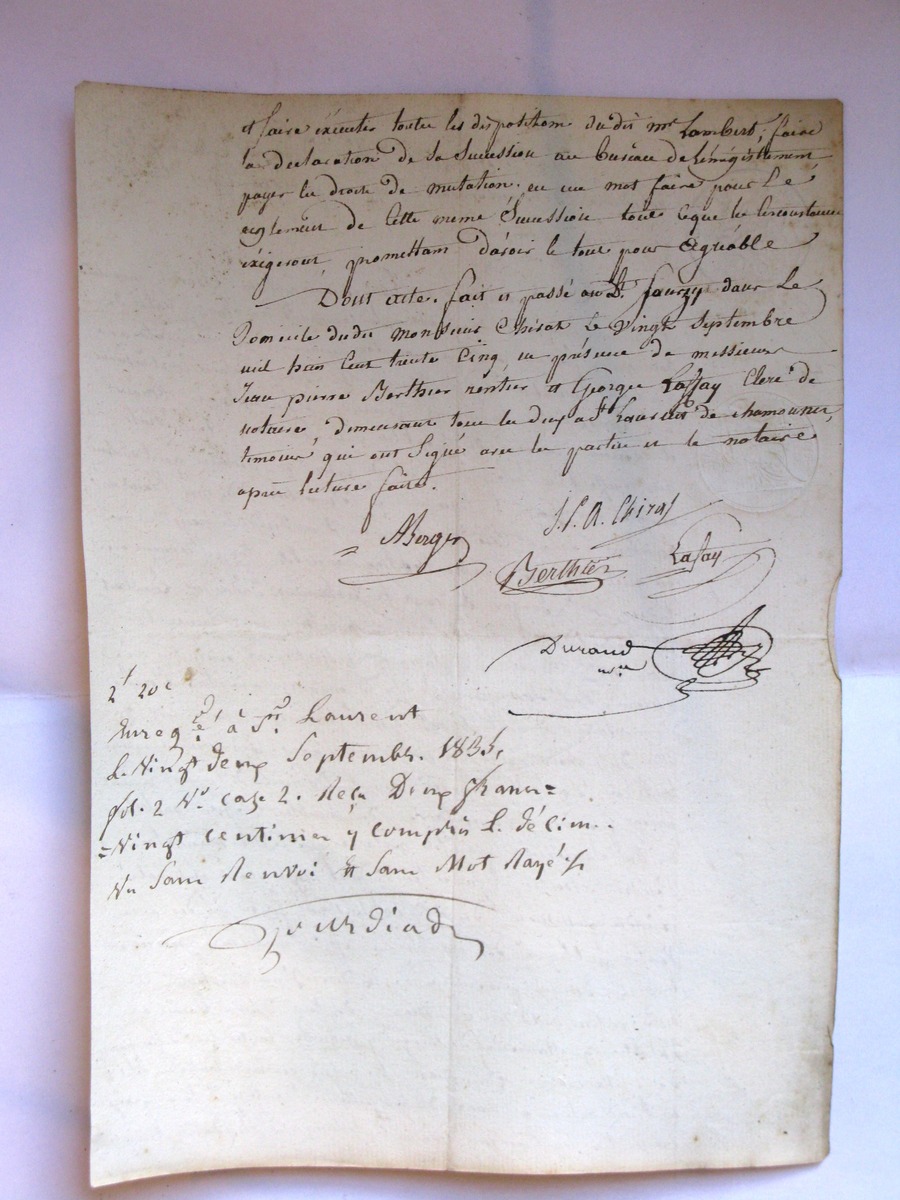 et faire éxécuter toute les dispositions du dit mr Lambert, faire
la declaration de sa Succession au bureau de lénrégistrement
payer les droits de mutation. en un mot faire pour Le
reglement de Cette meme Succession tout Ceque les Circonstances
exigeront, promettant davoir le tout pour agréable
Dont acte. fait et passé au dt. fauzy dans Le
Domicile dudit Monsieur Chirat Le vingt Septembre
mil huit Cent trente Cinq en présence de messieurs
Jean pierre Berthier rentier et George Lassay Clerc de
notaire demeurant tous les deux a St Laurent de chamousset,
temoins qui ont Signé avec les parties et le notaire
après lecture faite.
ABerger J. P. A. Chirat
Berthier Lassay
Durand
nre
2f 20c
Enregistré à St. Laurent
Le Vingt deux Septembre. 1835,
fol. 2 Vo. case 2. Reçu Deux francs
Vingt centimes y compris Le décime.
Vu Sans Renvoi et Sans Mot Rayé